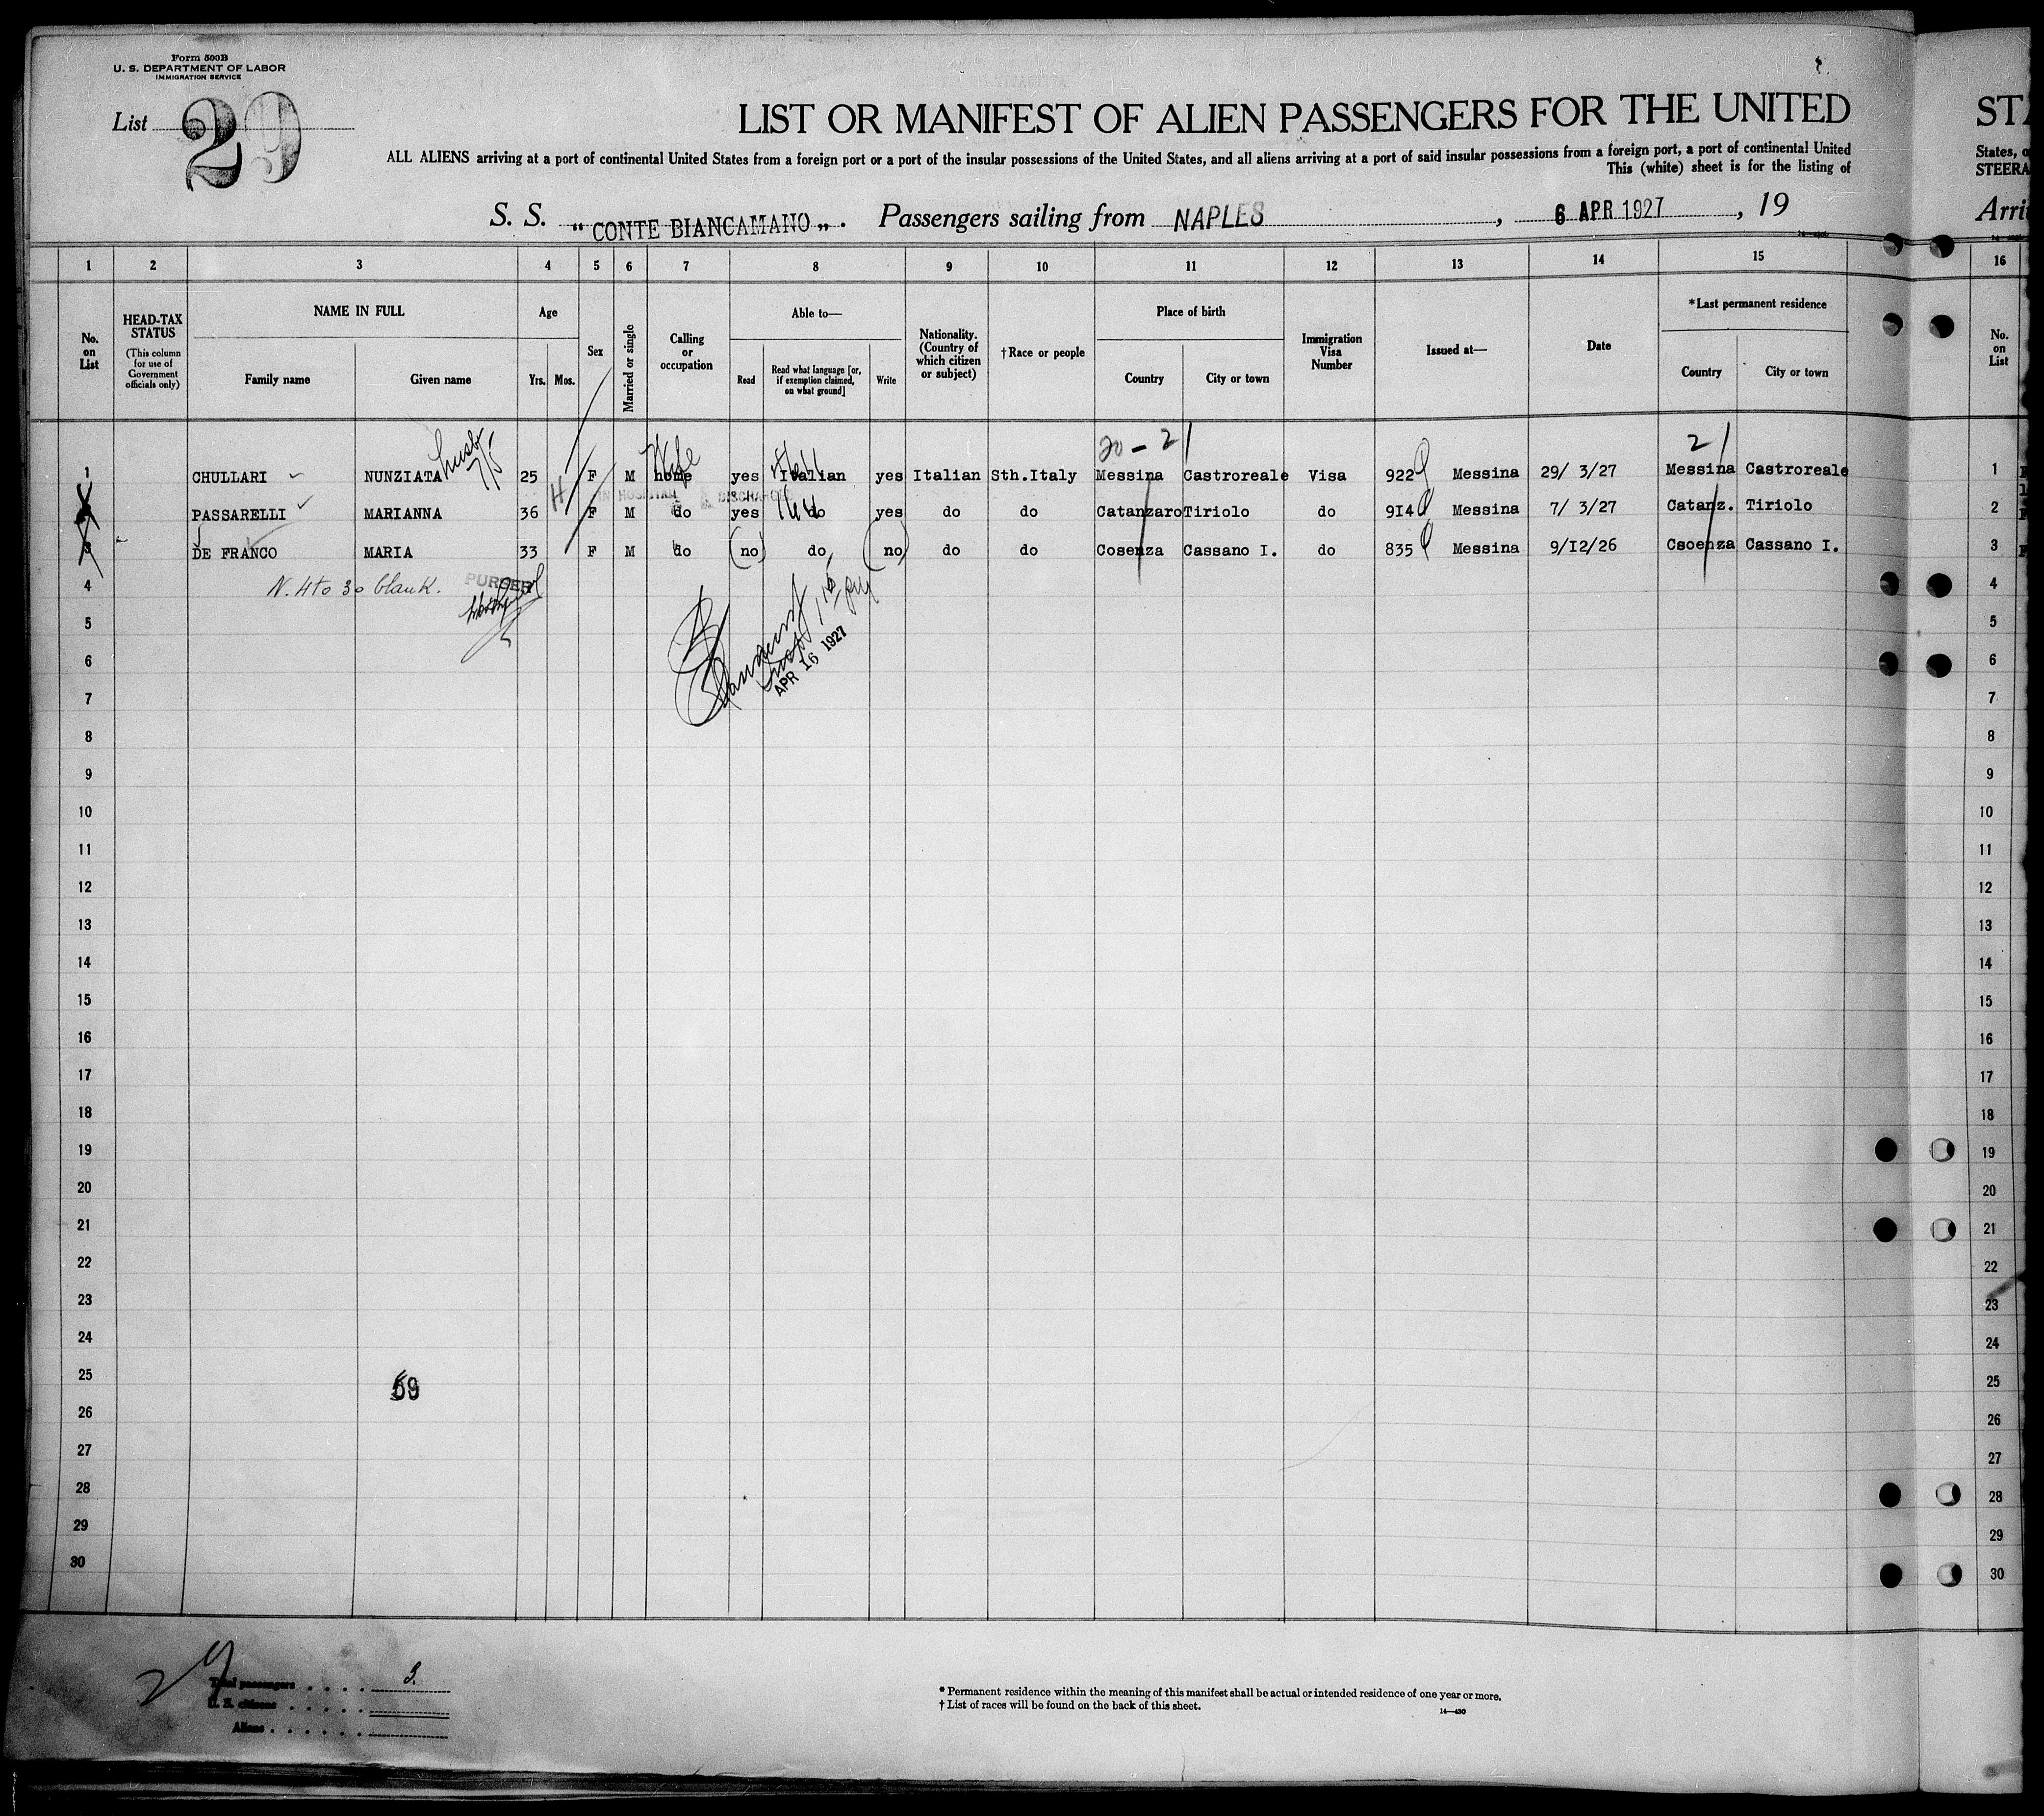 Form 500B
U. S. DEPARTMENT OF LABOR
IMMIGRATION SERVICE
List 29
LIST OR MANIFEST OF ALIEN PASSENGERS FOR THE UNITED
ALL ALIENS arriving at a port of continental United States from a foreign port or a port of the insular possessions of the United States, and all aliens arriving at a port of said insular possessions from a foreign port, a port of continental United
This (white) sheet is for the listing of
S. S. "CONTE BIANCAMANO". Passengers sailing from NAPLES, 6 APR 1927, 19
STA
States, o
STEERA
Arri
1 2 3 4 5 6 7 8 9 10 11 12 13 14 15 16
No. on List
HEAD-TAX STATUS
(This column for use of Government officials only)
NAME IN FULL
Family name
Given name
Age
Yrs. Mos.
Sex
Married or single
Calling or occupation
Able to—
Read
Read what language [or, if exemption claimed, on what ground]
Write
Nationality. (Country of which citizen or subject)
†Race or people
Place of birth
Country
City or town
Immigration Visa Number
Issued at—
Date
*Last permanent residence
Country
City or town
No. on List
20-21
21
husb.
Wife
1 CHULLARI NUNZIATA 25 F M home yes Italian yes Italian Sth.Italy Messina Castroreale Visa 922 Messina 29/ 3/27 Messina Castroreale 1
IN HOSPITAL DISCHARGED
PASSARELLI MARIANNA 36 F M do yes do yes do do Catanzaro Tiriolo do 914 Messina 7/ 3/27 Catanz. Tiriolo 2
DE FRANCO MARIA 33 F M do (no) do (no) do do Cosenza Cassano I. do 835 Messina 9/12/26 Csoenza Cassano I. 3
4 N. 4 to 30 blank. 4
PURGED
APR 16 1927
5 5
6 6
7 7
8 8
9 9
10 10
11 11
12 12
13 13
14 14
15 15
16 16
17 17
18 18
19 19
20 20
21 21
22 22
23 23
24 24
25 25
59
26 26
27 27
28 28
29 29
30 30
29
Total passengers . . . . . 3.
U. S. citizens . . . . .
Aliens . . . . . .
* Permanent residence within the meaning of this manifest shall be actual or intended residence of one year or more.
† List of races will be found on the back of this sheet.
14—430